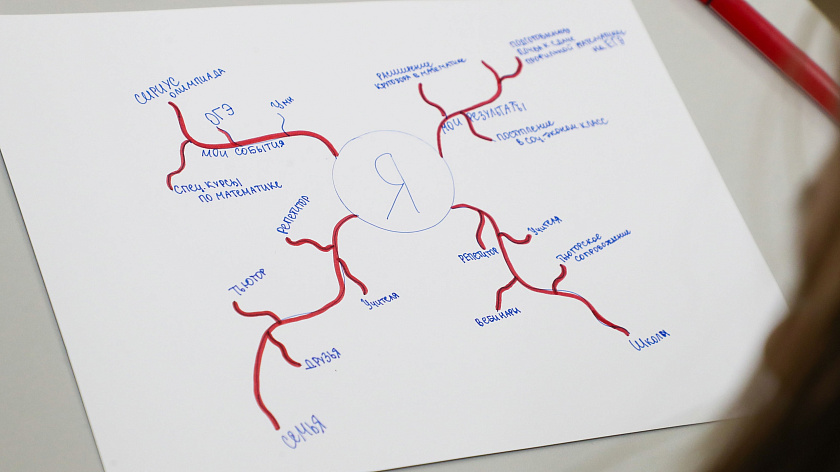 СИРИУС
ОЛИМПИАДА
ОГЭ
УМИ
МОИ СОБЫТИЯ
СПЕЦ.КУРСЫ
ПО МАТЕМАТИКЕ
Я
РАСШИРЕНИЕ
КРУГОЗОРА В МАТЕМАТИКЕ
К СДАЧЕ
ПРОФИЛЬНОЙ МАТЕМАТИКИ
НА ЕГЭ
МОИ РЕЗУЛЬТАТЫ
ПОСТУПЛЕНИЕ
В СОЦ-ЭКОНОМ КЛАСС
РЕПЕТИТОР
ТЬЮТОР
УЧИТЕЛЯ
ДРУЗЬЯ
СЕМЬЯ
РЕПЕТИТОР
УЧИТЕЛЯ
ТЬЮТОРСКОЕ
СОПРОВОЖДЕНИЕ
ВЕБИНАРЫ
ШКОЛА